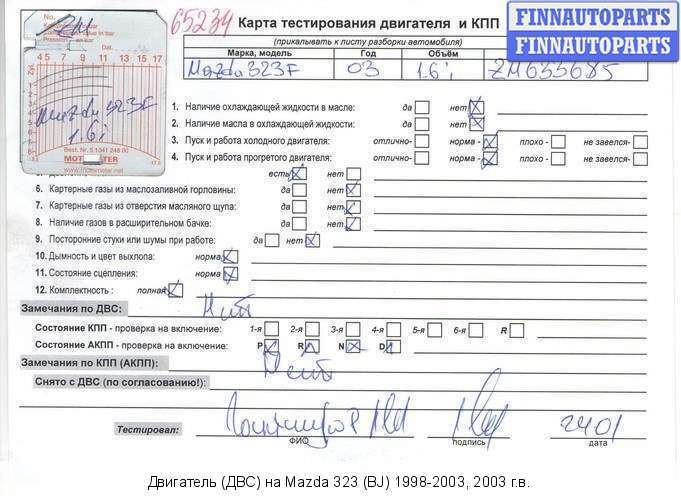 65234
Карта тестирования двигателя и КПП
(прикалывать к листу разборки автомобиля)
FINNAUTOPARTS
FINNAUTOPARTS
Марка, модель Год Объём
Mazda 323F 03 1.6i ZM633685
No.
4 5 7 9 11 13 15 17
Zyl.
Mazda 323F
1.6i
Best. Nr. 5 1341 248 00
MOTOMETER
www.motometer.net
1. Наличие охлаждающей жидкости в масле: да нет
2. Наличие масла в охлаждающей жидкости: да нет
3. Пуск и работа холодного двигателя: отлично- норма - плохо - не завелся-
4. Пуск и работа прогретого двигателя: отлично- норма - плохо - не завелся-
есть нет
6. Картерные газы из маслозаливной горловины: да нет
7. Картерные газы из отверстия масляного щупа: да нет
8. Наличие газов в расширительном бачке: да нет
9. Посторонние стуки или шумы при работе: да нет
10. Дымность и цвет выхлопа: норма
11. Состояние сцепления: норма
12. Комплектность : полная
Замечания по ДВС: Нет
Состояние КПП - проверка на включение: 1-я 2-я 3-я 4-я 5-я 6-я R
Состояние АКПП - проверка на включение: P R N D
Замечания по КПП (АКПП): Нет
Снято с ДВС (по согласованию!):
Тестировал: 2401
ФИО подпись дата
Двигатель (ДВС) на Mazda 323 (BJ) 1998-2003, 2003 г.в.